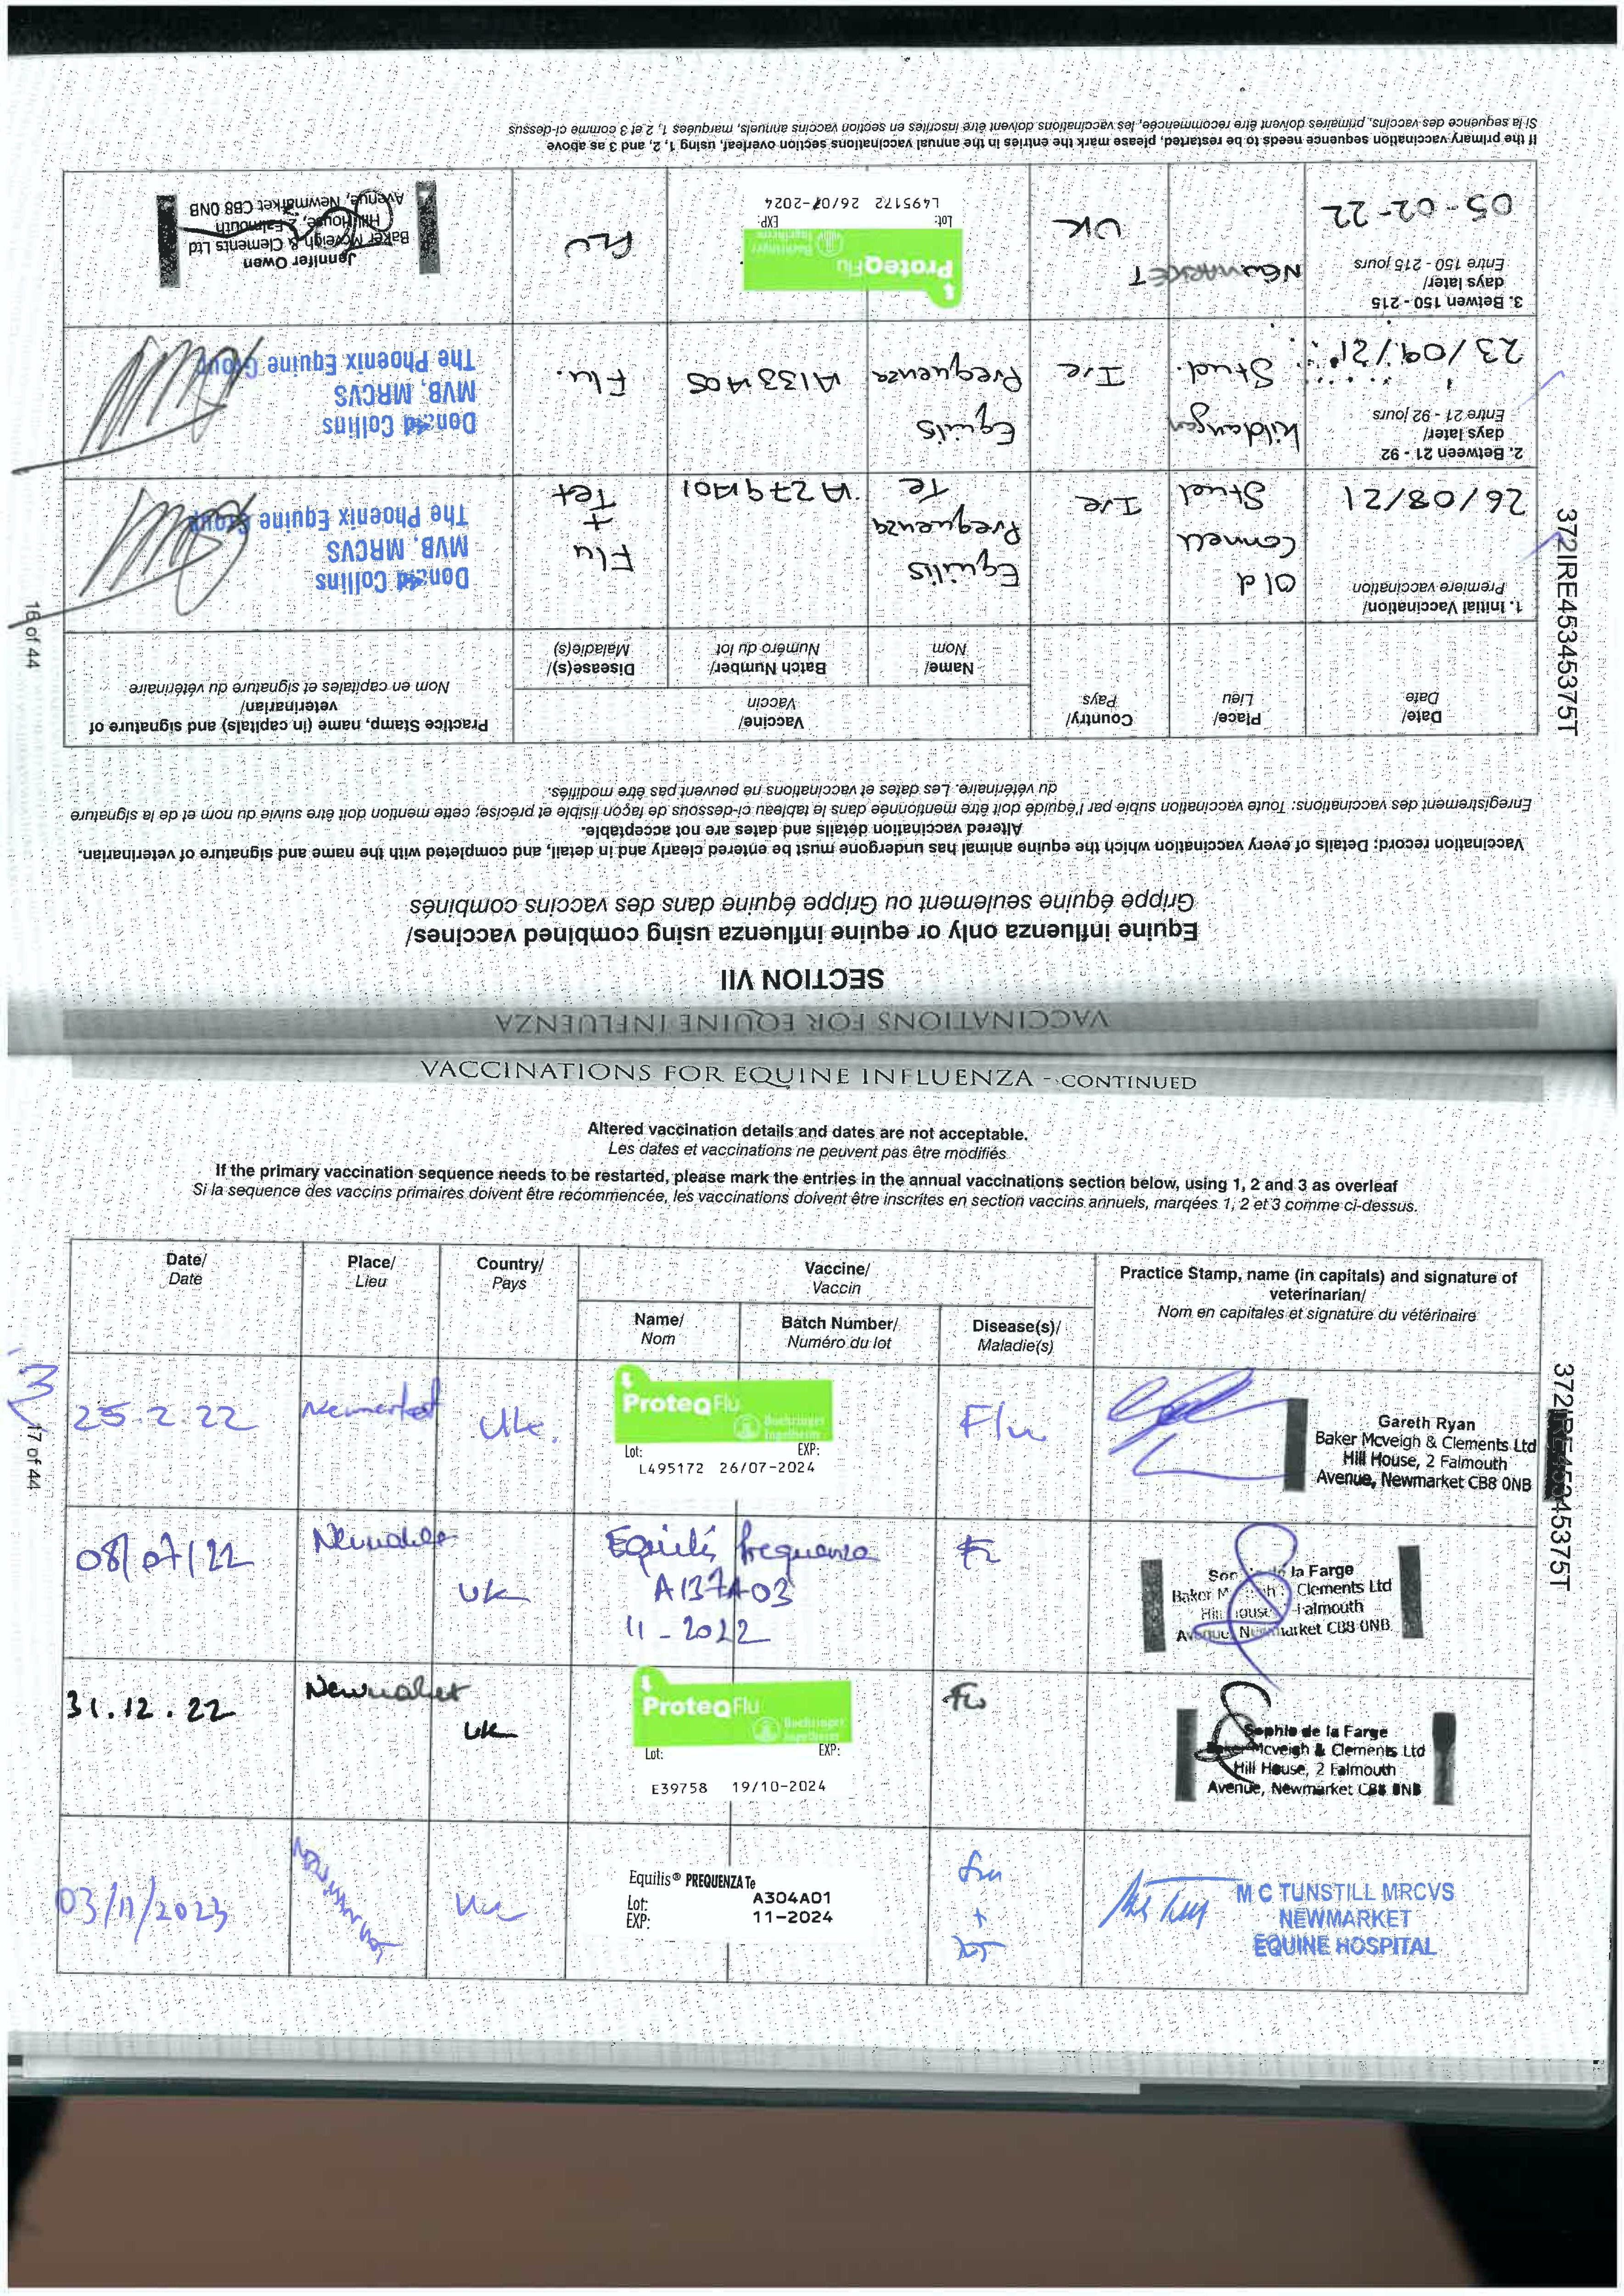 VACCINATIONS FOR EQUINE INFLUENZA
SECTION VII
Equine influenza only or equine influenza using combined vaccines/
Grippe équine seulement ou Grippe équine dans des vaccins combinés
Vaccination record: Details of every vaccination which the equine animal has undergone must be entered clearly and in detail, and completed with the name and signature of veterinarian.
Altered vaccination details and dates are not acceptable.
Enregistrement des vaccinations: Toute vaccination subie par l'équidé doit être mentionnée dans le tableau ci-dessous de façon lisible et précise; cette mention doit être suivie du nom et de la signature
du vétérinaire. Les dates et vaccinations ne peuvent pas être modifiés.
Date/
Date
Place/
Lieu
Country/
Pays
Vaccine/
Vaccin
Name/
Nom
Batch Number/
Numéro du lot
Disease(s)/
Maladie(s)
Practice Stamp, name (in capitals) and signature of
veterinarian/
Nom en capitales et signature du vétérinaire
1. Initial Vaccination/
Première vaccination
26/08/21
Old
Connell
Stud
Ire
Equilis
Prequenza
Te
A279A01
Flu
+
Tet
Donald Collins
MVB, MRCVS
The Phoenix Equine Group
2. Between 21 - 92
days later/
Entre 21 - 92 jours
23/09/21
Kildangan
Stud.
Ire
Equilis
Prequenza
A133A05
Flu.
Donald Collins
MVB, MRCVS
The Phoenix Equine Group
3. Betwen 150 - 215
days later/
Entre 150 - 215 jours
05-02-22
NEWMARKET
UK
ProteqFlu
Boehringer
Ingelheim
Lot: EXP:
L495172 26/07-2024
FLU
Jennifer Owen
Baker Mcveigh & Clements Ltd
Hill House, 2 Falmouth
Avenue, Newmarket CB8 0NB
If the primary vaccination sequence needs to be restarted, please mark the entries in the annual vaccinations section overleaf, using 1, 2, and 3 as above
Si la sequence des vaccins, primaires doivent être recommencée, les vaccinations doivent être inscrites en section vaccins annuels, marquées 1, 2 et 3 comme ci-dessus
372IRE45345375T
16 of 44
VACCINATIONS FOR EQUINE INFLUENZA - CONTINUED
Altered vaccination details and dates are not acceptable.
Les dates et vaccinations ne peuvent pas être modifiés
If the primary vaccination sequence needs to be restarted, please mark the entries in the annual vaccinations section below, using 1, 2 and 3 as overleaf
Si la sequence des vaccins primaires doivent être recommencée, les vaccinations doivent être inscrites en section vaccins annuels, marqées 1, 2 et 3 comme ci-dessus.
Date/
Date
Place/
Lieu
Country/
Pays
Vaccine/
Vaccin
Name/
Nom
Batch Number/
Numéro du lot
Disease(s)/
Maladie(s)
Practice Stamp, name (in capitals) and signature of
veterinarian/
Nom en capitales et signature du vétérinaire
3
25.2.22
Newmarket
Uk.
ProteqFlu
Boehringer
Ingelheim
Lot: EXP:
L495172 26/07-2024
Flu
Gareth Ryan
Baker Mcveigh & Clements Ltd
Hill House, 2 Falmouth
Avenue, Newmarket CB8 0NB
08/07/22
Newmarket
UK
Equilis Prequenza
A137A03
11-2022
la Farge
Clements Ltd
Falmouth
Newmarket CB8 0NB
31.12.22
Newmarket
UK
ProteqFlu
Boehringer
Ingelheim
Lot: EXP:
E39758 19/10-2024
Flu
Sophie de la Farge
Baker Mcveigh & Clements Ltd
Hill House, 2 Falmouth
Avenue, Newmarket CB8 0NB
03/11/2023
NEWMARKET
UK
Equilis® PREQUENZA Te
Lot: A304A01
EXP: 11-2024
Flu
+
M C TUNSTILL MRCVS
NEWMARKET
EQUINE HOSPITAL
17 of 44
372IRE45345375T